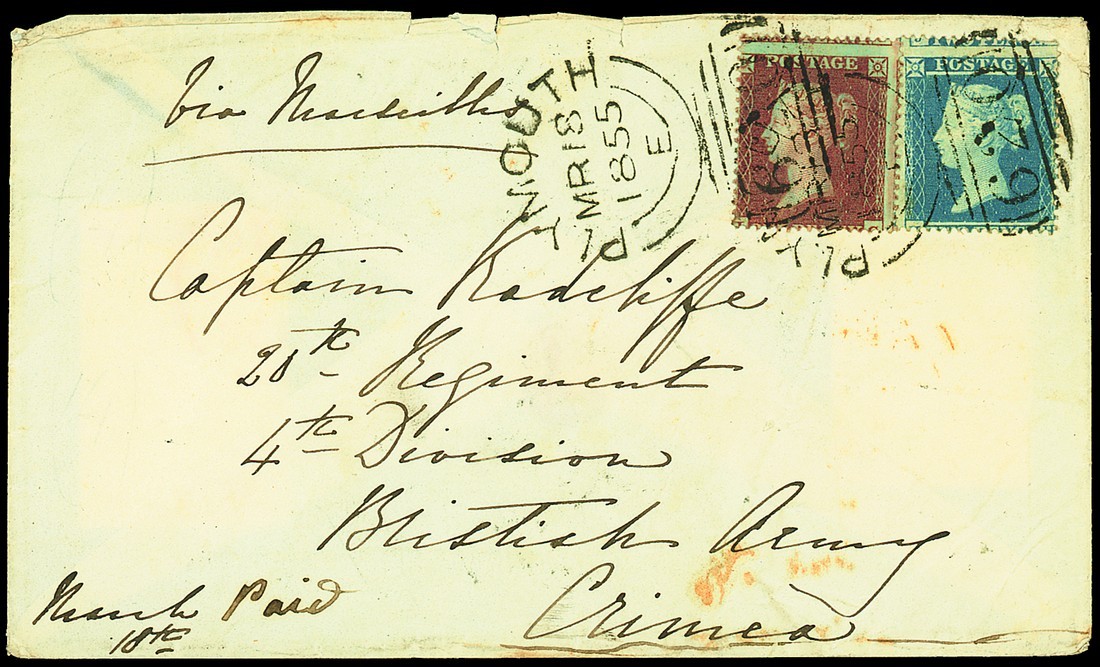 Via Marseilles
PLYMOUTH
MR 18
1855
E
POSTAGE
POSTAGE
620
620
Captain Radcliffe
20th Regiment
4th Division
British Army
Crimea
March Paid
18th